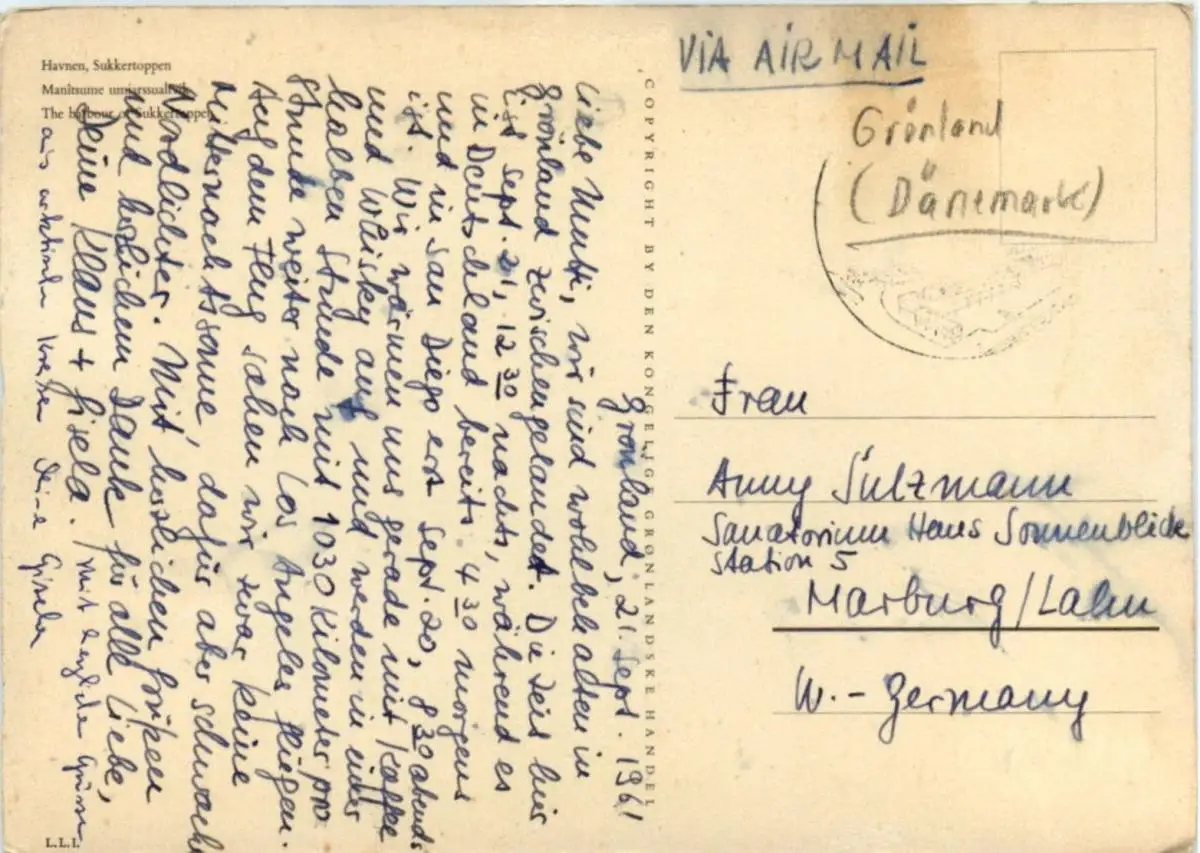 Havnen, Sukkertoppen
Manîtsume umiarssualivik
The harbour of Sukkertoppen
COPYRIGHT BY DEN KONGELIGE GRØNLANDSKE HANDEL
Grönland, 21. Sept. 1961
Liebe Mutti, wir sind wohlbehalten in
Grönland zwischengelandet. Die Zeit hier
ist Sept. 21, 12 30 nachts, während es
in Deutschland bereits 4 30 morgens
und in San Diego erst Sept. 20, 8 30 abends
ist. Wir wärmen uns gerade mit Kaffee
und Whisky auf und werden in einer
halben Stunde mit 1030 Kilometer pro
Stunde weiter nach Los Angeles fliegen.
Auf dem Flug sahen wir zwar keine
Mitternachtssonne, dafür aber schwache
Nordlichter. Mit herzlichen Grüßen
und herzlichem Dank für alle Liebe,
Deine Klaus + Gisela. Mit herzlichen Grüssen
aus arktischen Kreisen Deine Gisela
L.L.I.
VIA AIR MAIL
Grönland
(Dänemark)
Frau
Anny Sülzmann
Sanatorium Haus Sonnenblick
Station 5
Marburg/Lahn
W.-Germany